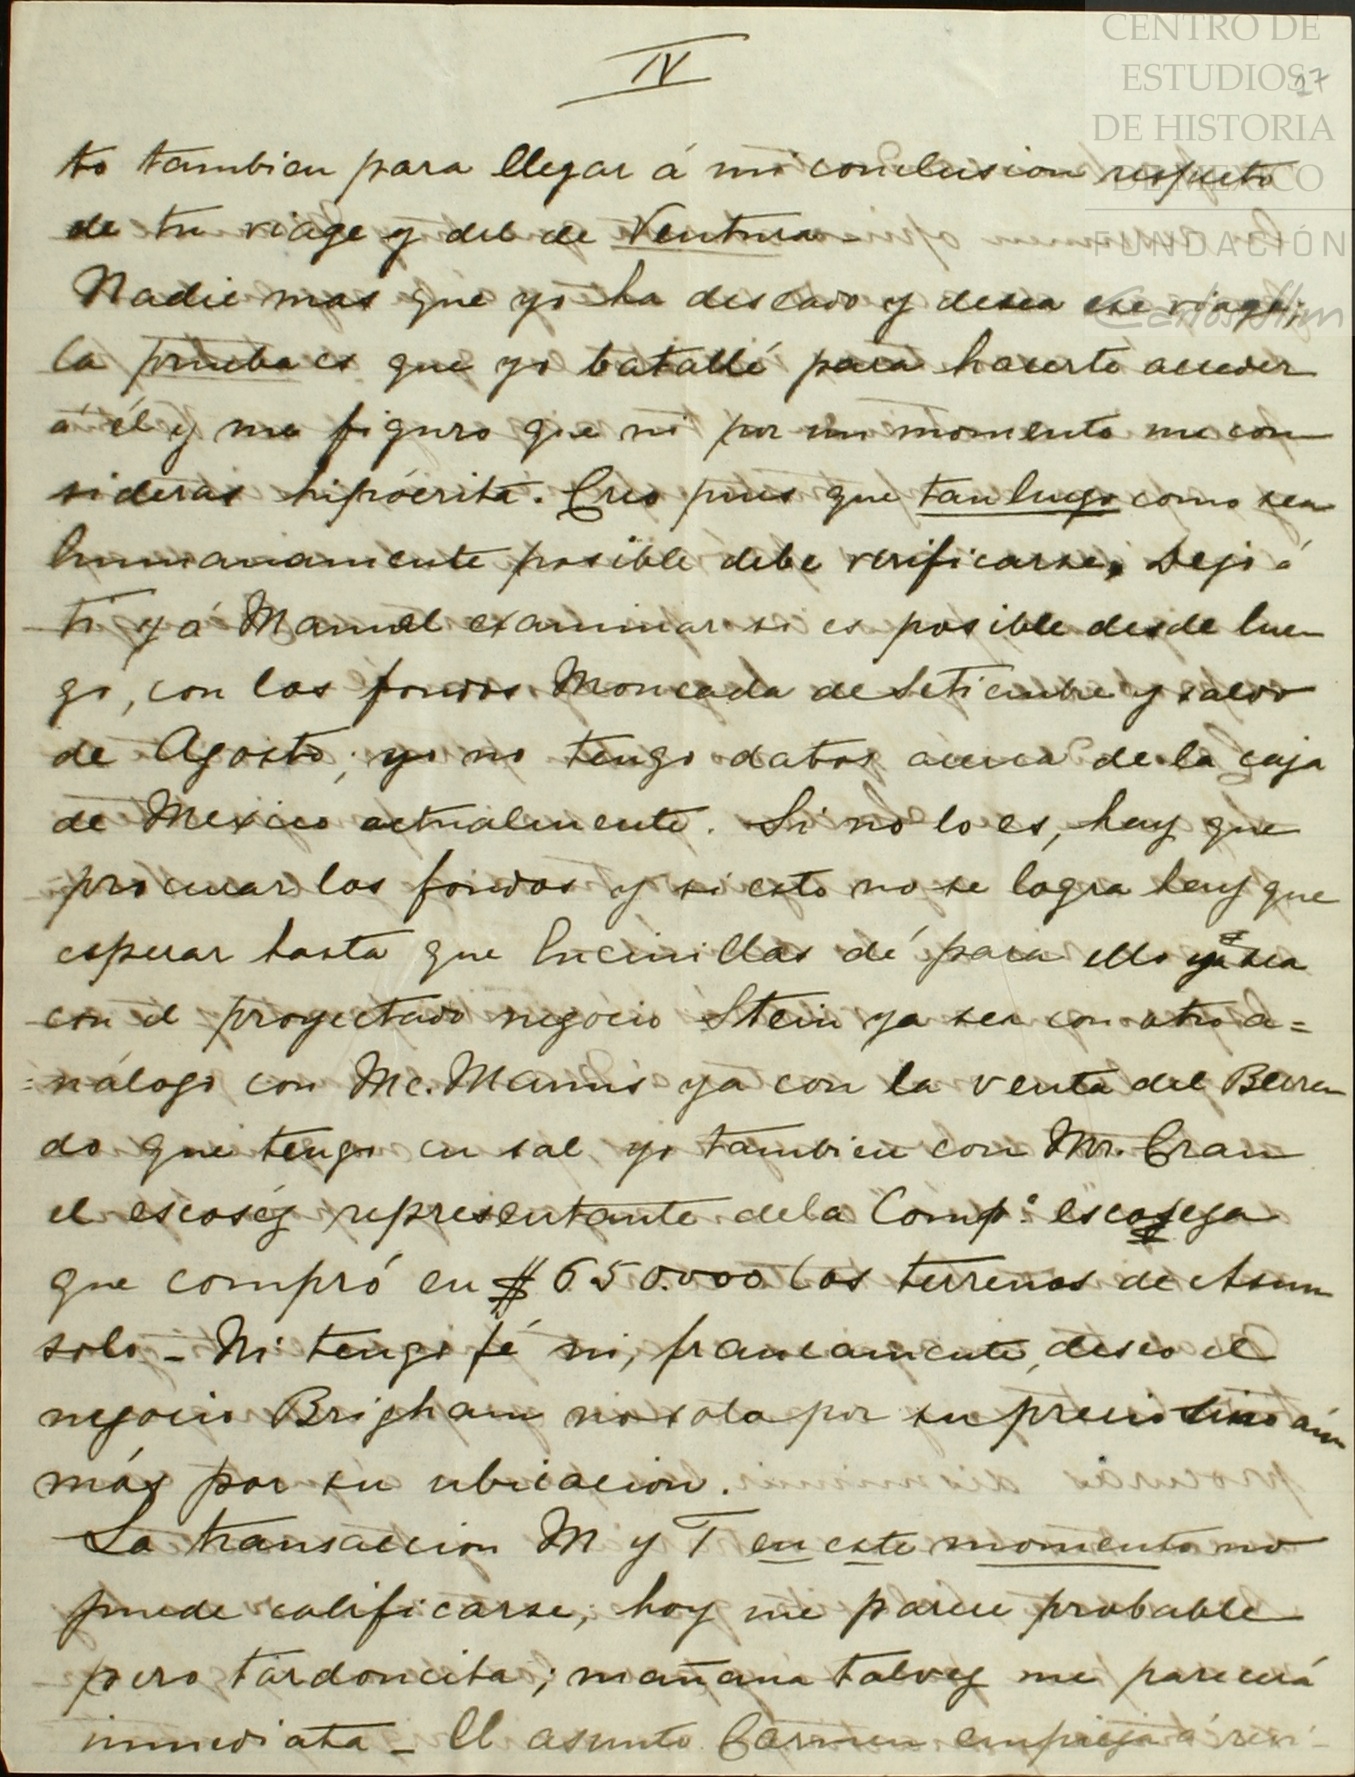 IV
17
CENTRO DE
ESTUDIOS
DE HISTORIA
DE MÉXICO
FUNDACIÓN
Carlos Slim
to tambien para llegar á mi conclusion respecto
de tu viage y del de Ventura-
Nadie mas que yo ha deseado y desea ese viage;
la prueba es que yo batallé para hacerte acceder
á él y me figuro que ni por un momento me con
sideras hipócrita. Creo pues que tan luego como sea
humanamente posible debe verificarse, Dejo á
ti y á Manuel examinar si es posible desde lue
go, con los fondos Moncada de Setiembre y saldo
de Agosto; yo no tengo datos acerca de la caja
de Mexico actualmente. Si no lo es, hay que
procurar los fondos y si esto no se logra hay que
esperar hasta que Encinillas dé para ello ya sea
con el proyectado negocio Stein ya sea con otro a=
=nálogo con Mc.Manus ya con la venta del Berren
do que tengo en sal yo tambien con Mr. Cran
el escoséz representante de la Compª. escosesa
que compró en $ 650.000 los terrenos de Asun
solo - Ni tengo fé ni, francamente, deseo el
negocio Brigham no solo por su precio sino aún
más por su ubicacion.
La transaccion M y T en este momento no
puede calificarse; hoy me parece probable
pero tardoncita; mañana talvez me parecerá
inmediata - El asunto Carmen empieza á